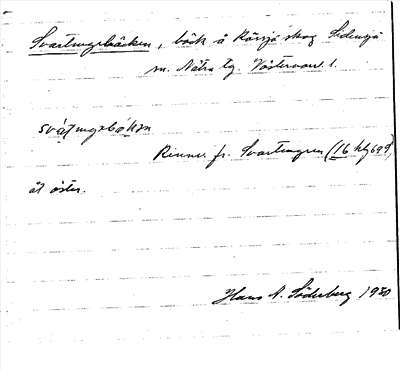 Svartungebäcken, bäck å Rössjö skog Sidensjö
sn. Nätra tg. Västernorrl. l.
Rinner fr. Svartungen (16 
åt öster.
Hans A. Söderberg 1930